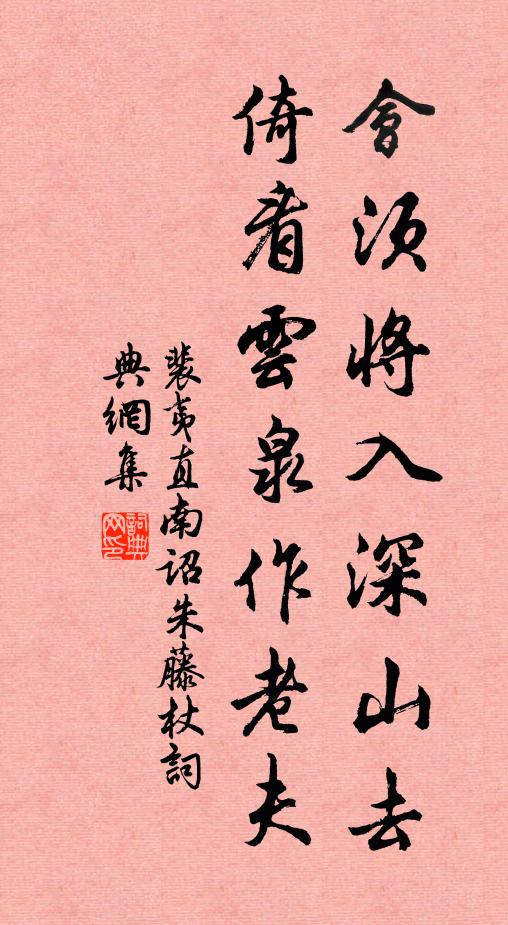 會須將入深山去
倚看雲泉作老夫
裴夷直南诏朱藤杖詞
典網集
詞典
网印